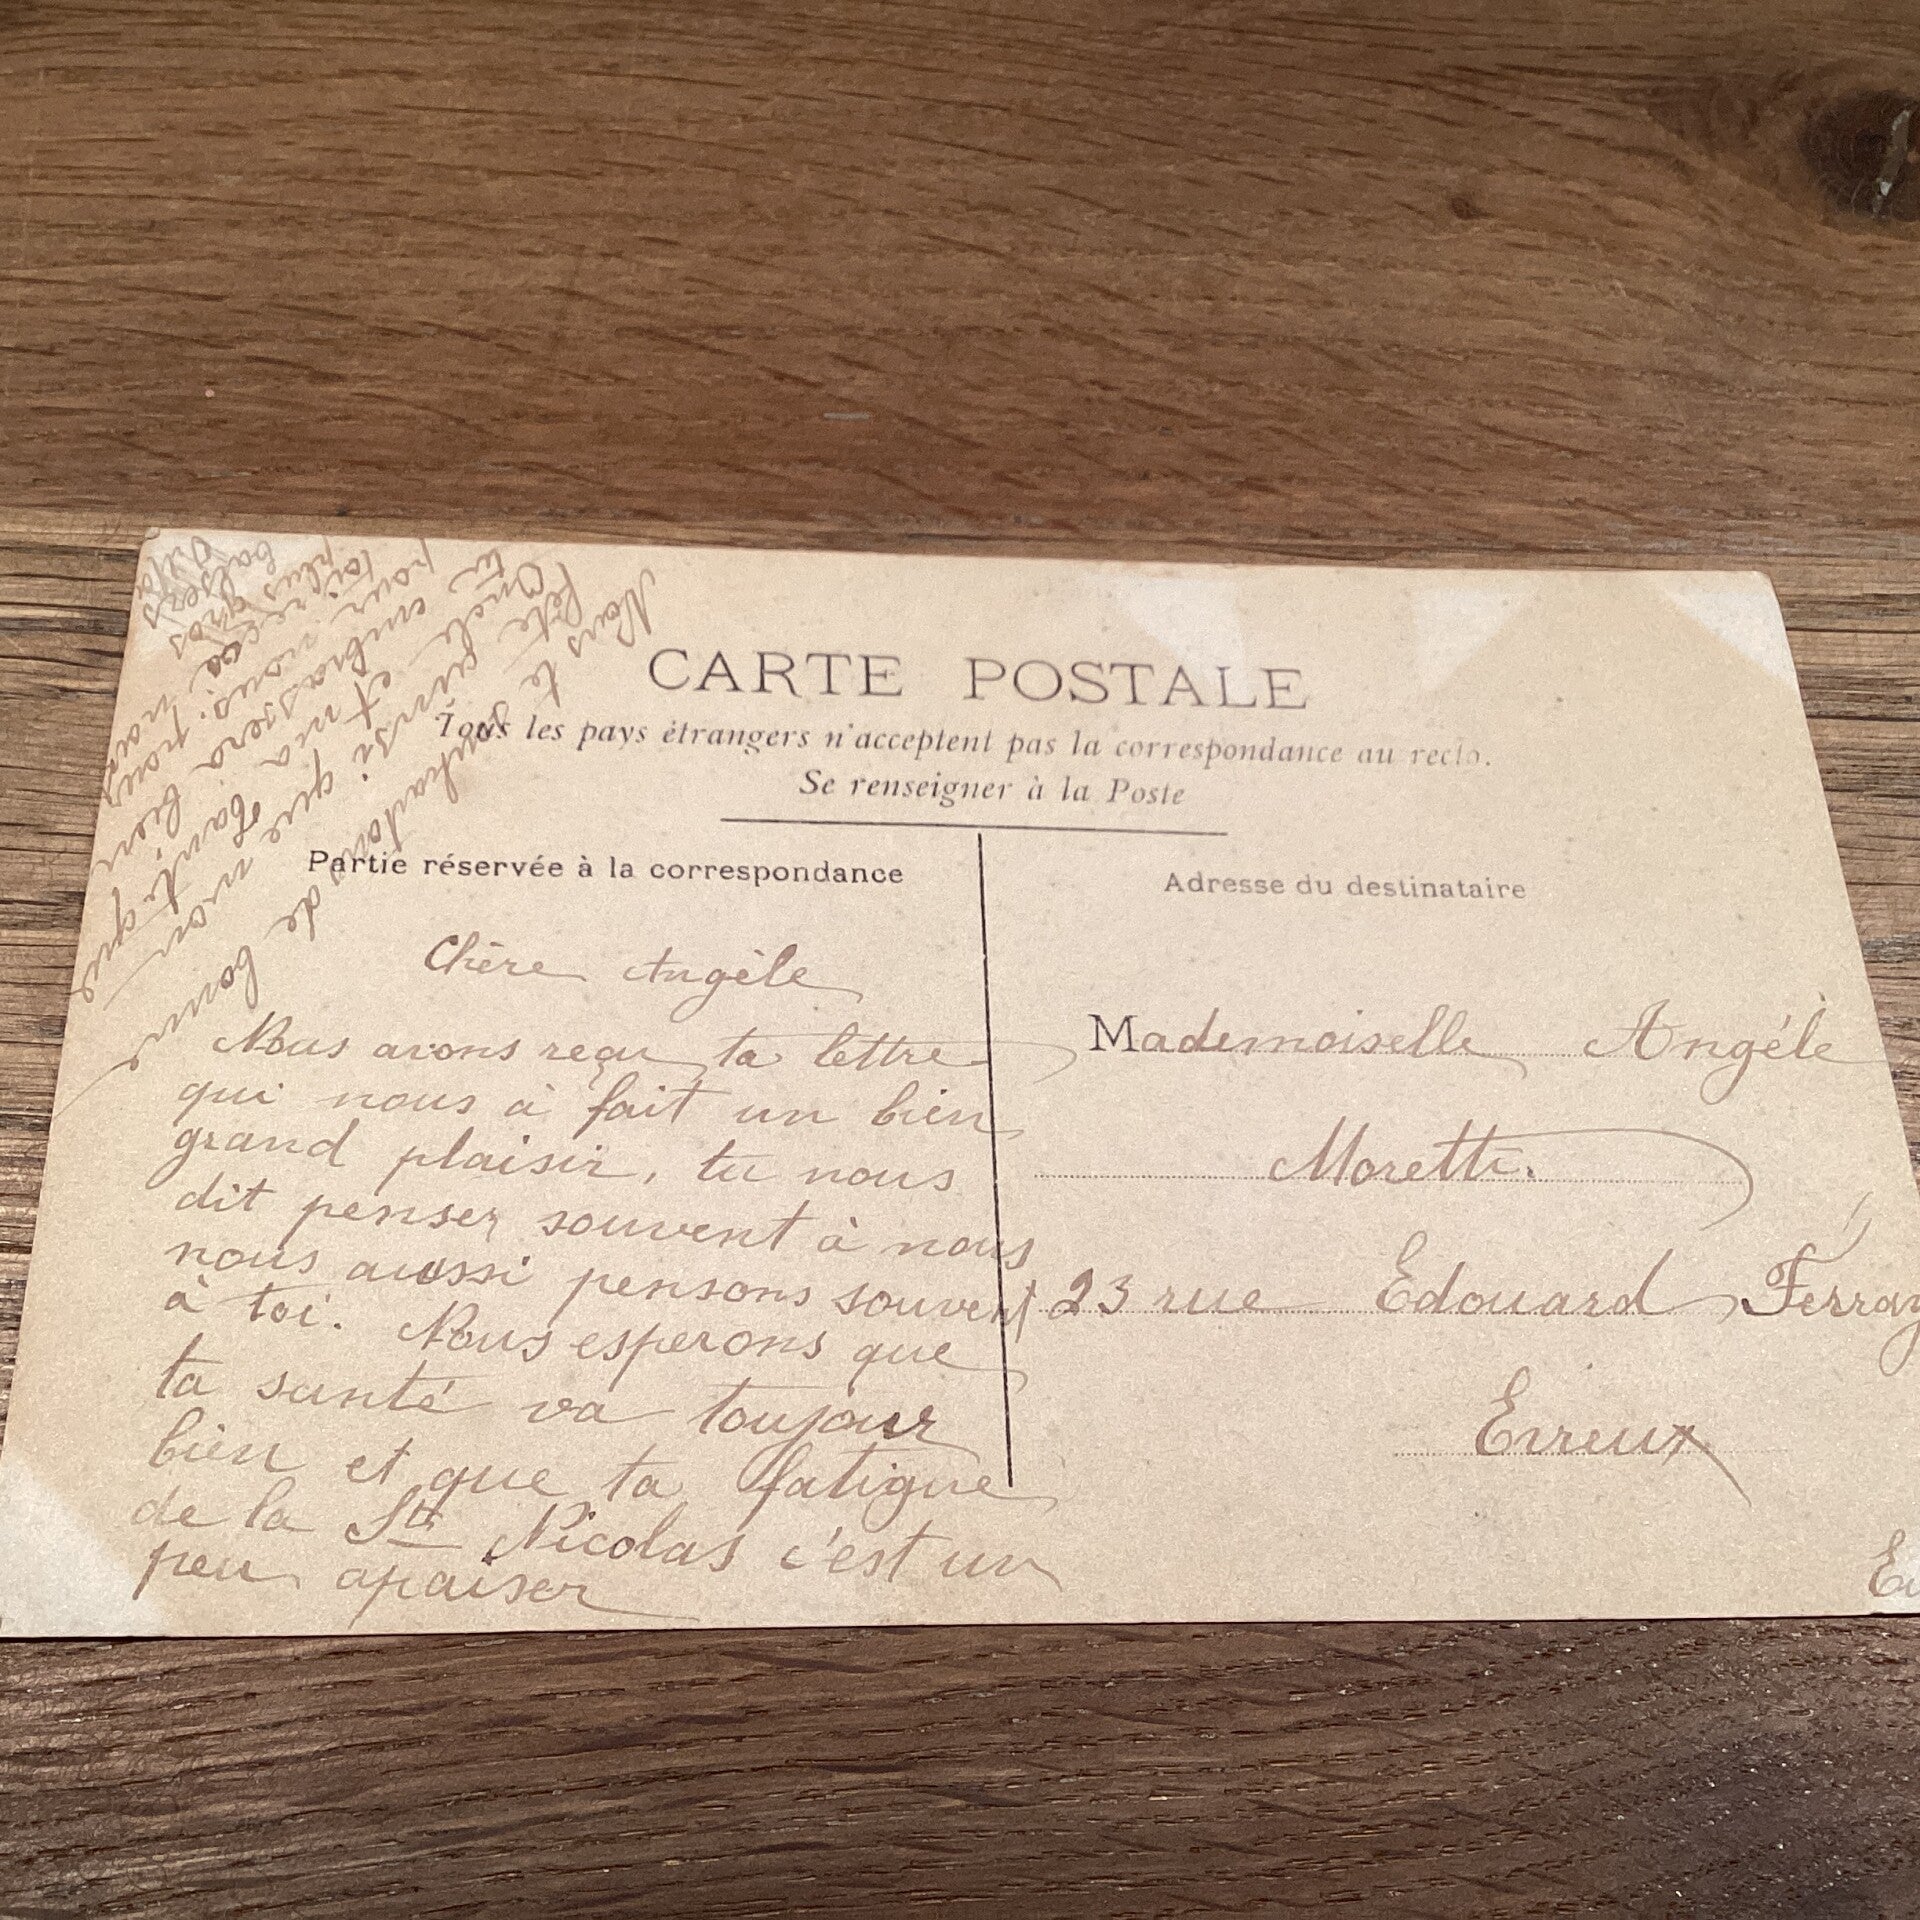 CARTE POSTALE
Tous les pays étrangers n'acceptent pas la correspondance au recto.
Se renseigner à la Poste
Partie réservée à la correspondance
Chère Angèle
Nous avons reçu ta lettre
qui nous à fait un bien
grand plaisir, tu nous
dit penser souvent à nous
nous aussi pensons souvent
à toi. Nous esperons que
ta santé va toujour
bien et que ta fatigue
de la St Nicolas c'est un
peu apaiser
Nous te souhaitons de bonne
fête ainsi que mon
Oncle et ma tante que
tu embrassera bien
pour nous. pour
toi reçoe nos
plus gros
baisers
Adresse du destinataire
Mademoiselle Angéle
Moretti.
23 rue Edouard Ferray
Evreux